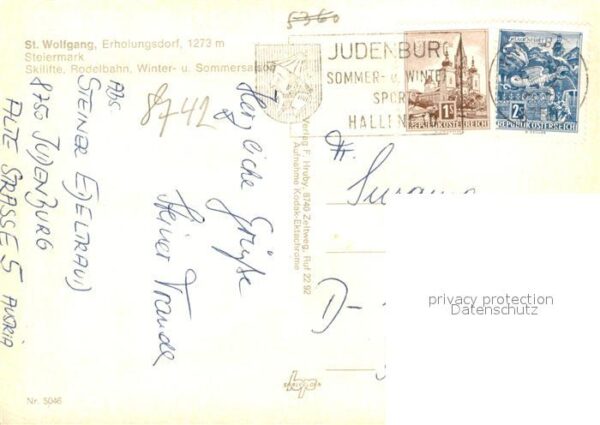 5360
St. Wolfgang, Erholungsdorf, 1273 m
Steiermark
Skilifte, Rodelbahn, Winter- u. Sommersaison
JUDENBURG
SOMMER- u. WINTER
SPORT
HALLEN
1S
REPUBLIK ÖSTERREICH
2S
REPUBLIK ÖSTERREICH
8742
Abs
STEINER EDELTRAUD
8750 JUDENBURG
ALTE STRASSE 5 AUSTRIA
Herzliche Grüße
Steiner Traude
Verlag F. Hruby, 8740 Zeltweg, Ruf 22 92
Aufnahme Kodak-Ektachrome
Fr. Susanne
D-
privacy protection
Datenschutz
Nr. 5046